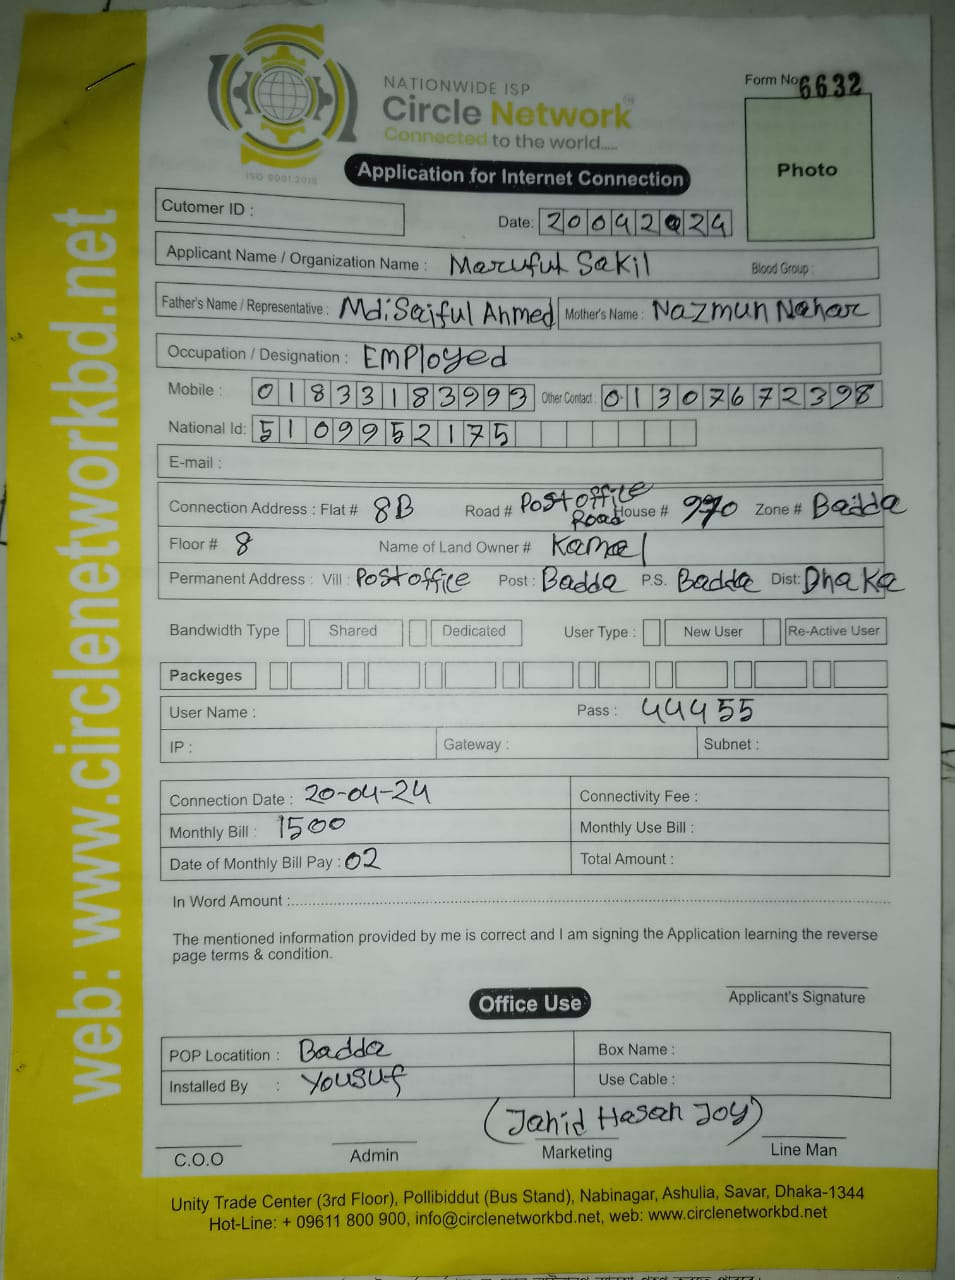 web: www.circlenetworkbd.net
NATIONWIDE ISP
Circle Network
Connected to the world.....
ISO 9001:2015
Application for Internet Connection
Form No 6632
Photo
Cutomer ID :
Date: 20042024
Applicant Name / Organization Name : Marufut Sakil Blood Group :
Father's Name / Representative : Md: Saiful Ahmed Mother's Name : Nazmun Nahar
Occupation / Designation : EMPloyed
Mobile : 01833183993 Other Contact : 01307672398
National Id: 5109952175
E-mail :
Connection Address : Flat # 8B Road # Post office Road House # 970 Zone # Badda
Floor # 8 Name of Land Owner # Kamal
Permanent Address : Vill : Post office Post : Badda P.S. Badda Dist: Dhaka
Bandwidth Type Shared Dedicated User Type : New User Re-Active User
Packeges
User Name : Pass : 44455
IP : Gateway : Subnet :
Connection Date : 20-04-24 Connectivity Fee :
Monthly Bill : 1500 Monthly Use Bill :
Date of Monthly Bill Pay : 02 Total Amount :
In Word Amount :
The mentioned information provided by me is correct and I am signing the Application learning the reverse
page terms & condition.
Applicant's Signature
Office Use
POP Locatition : Badda Box Name :
Installed By : Yousuf Use Cable :
(Jahid Hasan Joy)
C.O.O Admin Marketing Line Man
Unity Trade Center (3rd Floor), Pollibiddut (Bus Stand), Nabinagar, Ashulia, Savar, Dhaka-1344
Hot-Line: + 09611 800 900, info@circlenetworkbd.net, web: www.circlenetworkbd.net